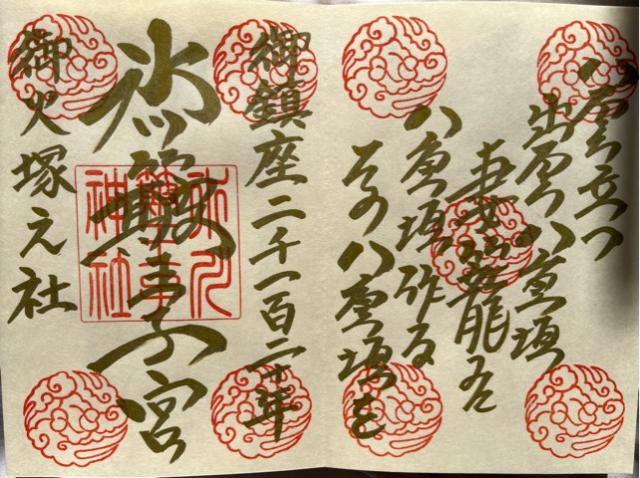 八雲立つ
出雲八重垣
八重垣作る
その八重垣を
御鎮座二千百二十年
氷川簸王子宮
御火塚元社
氷川
簸王子
神社